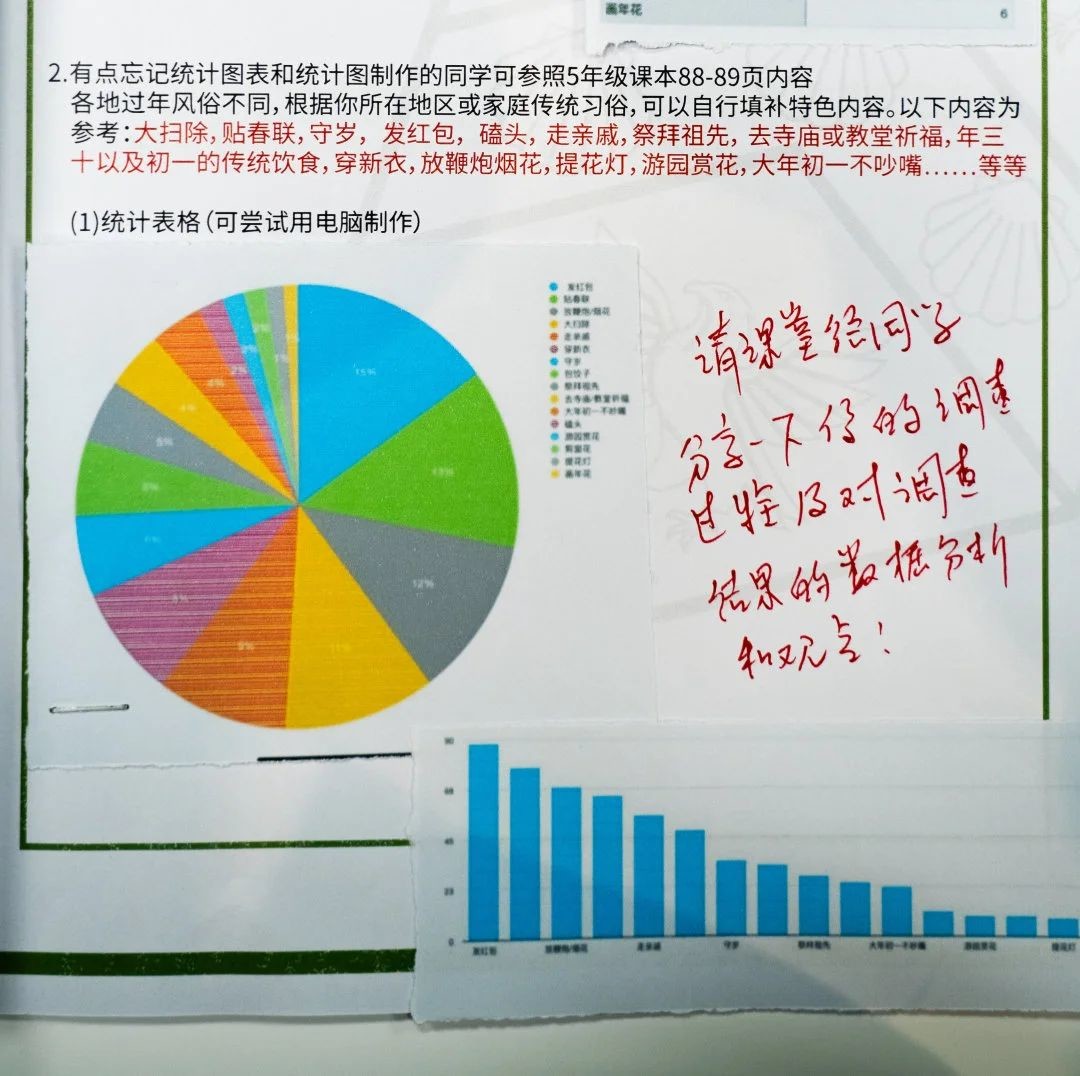 画年花 6
2.有点忘记统计图表和统计图制作的同学可参照5年级课本88-89页内容
各地过年风俗不同,根据你所在地区或家庭传统习俗,可以自行填补特色内容。以下内容为
参考:大扫除,贴春联,守岁, 发红包, 磕头, 走亲戚,祭拜祖先, 去寺庙或教堂祈福,年三
十以及初一的传统饮食,穿新衣,放鞭炮烟花,提花灯,游园赏花,大年初一不吵嘴……等等
(1)统计表格(可尝试用电脑制作)
发红包
贴春联
放鞭炮/烟花
大扫除
走亲戚
穿新衣
守岁
包饺子
祭拜祖先
去寺庙/教堂祈福
大年初一不吵嘴
磕头
游园赏花
剪窗花
提花灯
画年花
15%
13%
12%
11%
9%
8%
6%
5%
5%
4%
4%
2%
2%
2%
1%
请课堂给同学
分享一下你的调查
过程及对调查
结果的数据分析
和观点!
90
68
45
23
0
发红包 放鞭炮/烟花 走亲戚 守岁 祭拜祖先 大年初一不吵嘴 游园赏花 提花灯